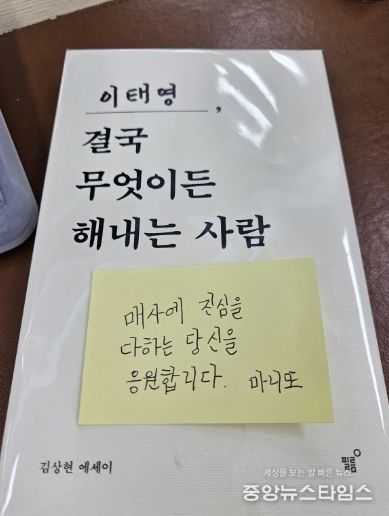 이태영,
결국
무엇이든
해내는 사람
매사에 진심을
다하는 당신을
응원합니다. 마니또
김상현 에세이
필름
세상을 보는 발 빠른 뉴스
중앙뉴스타임스